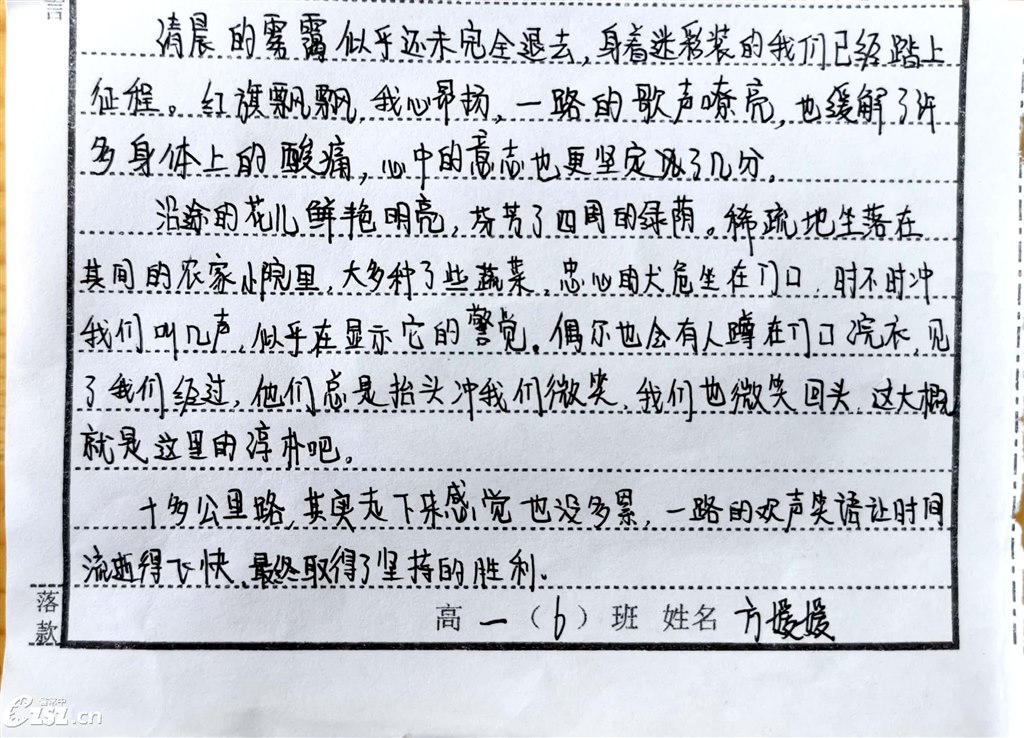 言
清晨的雾霭似乎还未完全退去,身着迷彩装的我们已经踏上
征程。红旗飘飘,我心昂扬,一路的歌声嘹亮,也缓解了许
多身体上的酸痛,心中的意志也更坚定了几分。
沿途的花儿鲜艳明亮,芬芳了四周的绿荫。稀疏地坐落在
其间的农家小院里,大多种了些蔬菜,忠心的犬危坐在门口,时不时冲
我们叫几声,似乎在显示它的警觉。偶尔也会有人蹲在门口浣衣,见
了我们经过,他们总是抬头冲我们微笑,我们也微笑回头,这大概
就是这里的淳朴吧。
十多公里路,其实走下来感觉也没多累,一路的欢声笑语让时间
流逝得飞快,最终取得了坚持的胜利.
落款
高一(6)班 姓名 方媛媛
1S1.cn